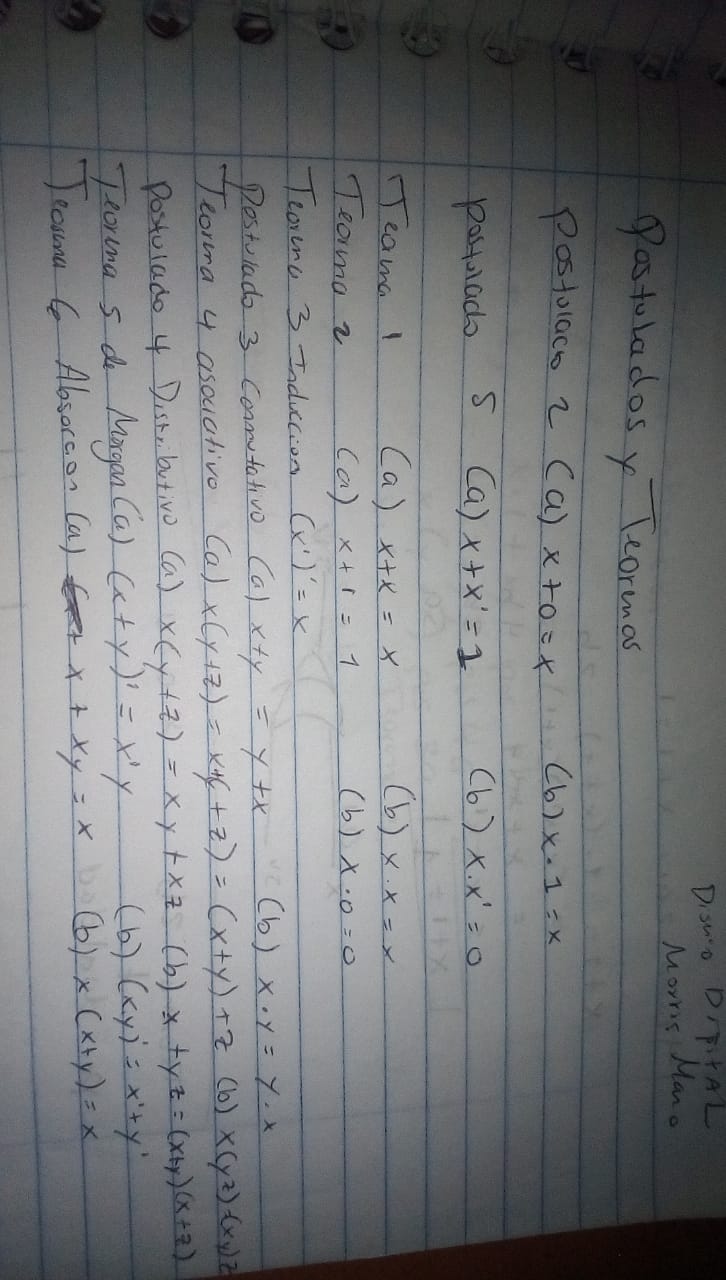 Diseño Digital
Morris Mano
Postulados y Teoremas
Postulado 2 (a) x+0=x (b) x·1=x
postulado 5 (a) x+x'=1 (b) x·x'=0
Teorema 1 (a) x+x = x (b) x·x=x
Teorema 2 (a) x+1=1 (b) x·0=0
Teorema 3 Induccion (x')'=x
Postulado 3 Conmutativo (a) x+y = y+x (b) x·y=y·x
Teorema 4 asociativo (a) x(y+z) = x+(y+z) = (x+y)+z (b) x(yz)=(xy)z
Postulado 4 Distributivo (a) x(y+z) = xy+xz (b) x+yz=(x+y)(x+z)
Teorema 5 de Morgan (a) (x+y)' = x'y (b) (xy)'=x'+y'
Teorema 6 Absorcion (a) x + xy = x (b) x(x+y)=x